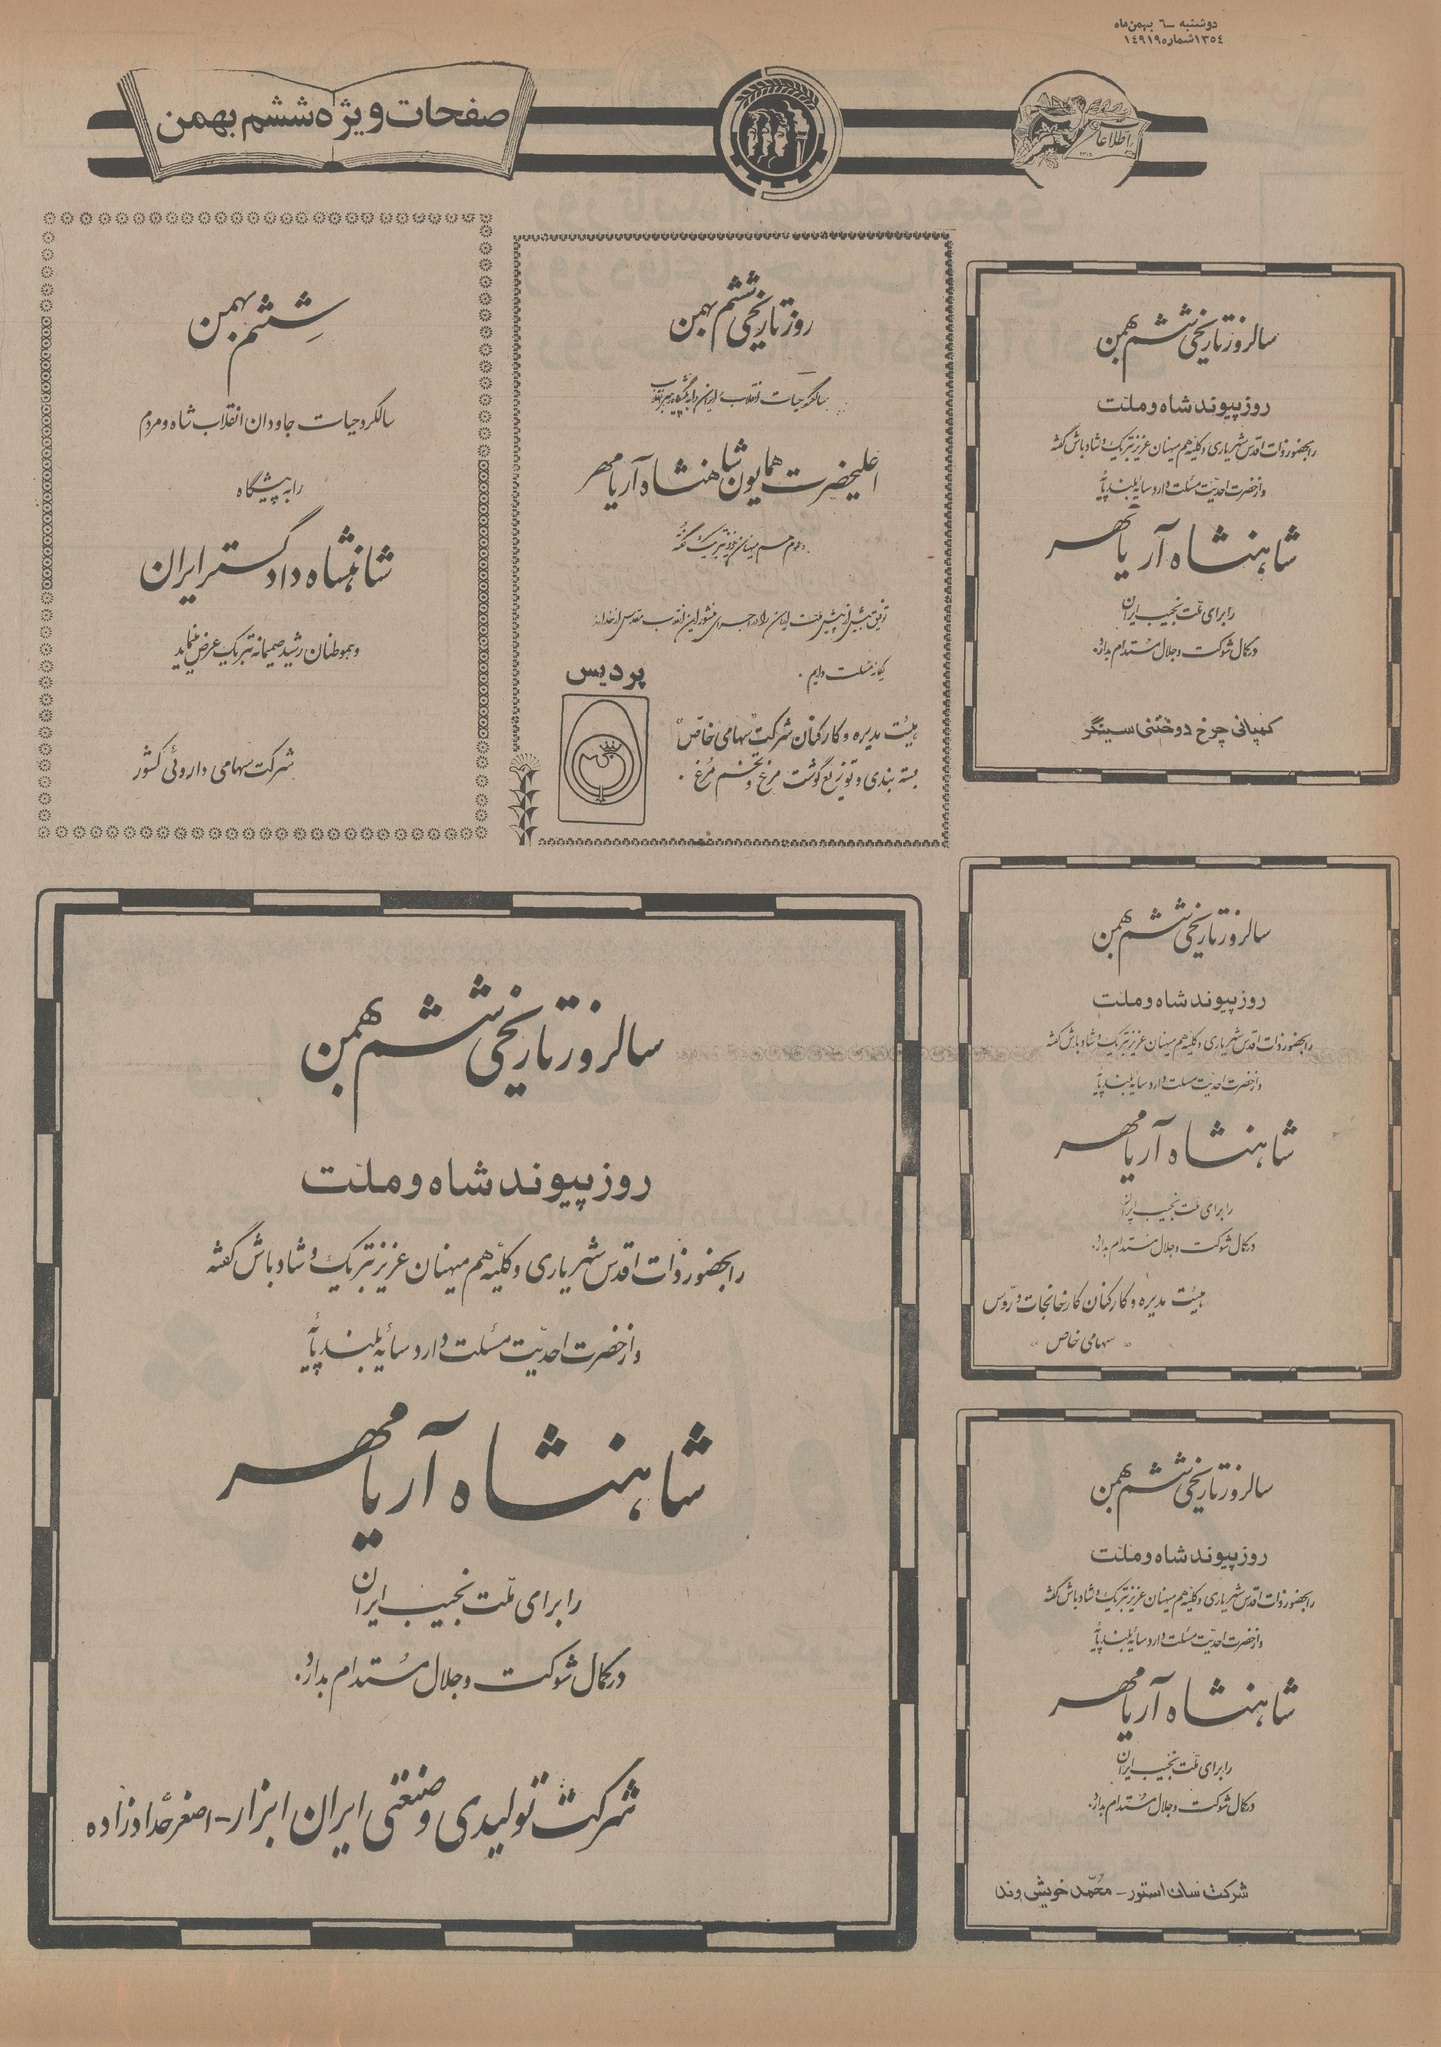 دوشنبه -٦ بهمن ماه
١٣٥٤ شماره ١٤٩١٩
اطلاعات
صفحات ویژه ششم بهمن
سالروز تاریخی ششم بهمن
روز پیوند شاه و ملت
را بحضور ذات اقدس شهریاری و کلیه هم میهنان عزیز تبریک و شادباش گفته
و از حضرت احدیت مسئلت دارد سایه بلند پایه
شاهنشاه آریامهر
را برای ملت نجیب ایران
در کمال شوکت و جلال مستدام بدارد.
کمپانی چرخ دوختنی سینگر
روز تاریخی ششم بهمن
سالگرد حیات انقلاب ایران را به پیشگاه رهبر انقلاب
اعلیحضرت همایون شاهنشاه آریامهر
و عموم هم میهنان عزیز تبریک گفته
توفیق بیش از پیش ملت ایران را در اجرای منشور این انقلاب مقدس از خداوند
یگانه مسئلت داریم.
پردیس
هیئت مدیره و کارکنان شرکت سهامی خاص
بسته بندی و توزیع گوشت مرغ و تخم مرغ.
ششم بهمن
سالگرد حیات جاودان انقلاب شاه و مردم
را به پیشگاه
شاهنشاه دادگستر ایران
و هموطنان رشید صمیمانه تبریک عرض مینماید
شرکت سهامی داروئی کشور
سالروز تاریخی ششم بهمن
روز پیوند شاه و ملت
را بحضور ذات اقدس شهریاری و کلیه هم میهنان عزیز تبریک و شادباش گفته
و از حضرت احدیت مسئلت دارد سایه بلند پایه
شاهنشاه آریامهر
را برای ملت نجیب ایران
در کمال شوکت و جلال مستدام بدارد.
هیئت مدیره و کارکنان کارخانجات دروس
« سهامی خاص »
سالروز تاریخی ششم بهمن
روز پیوند شاه و ملت
را بحضور ذات اقدس شهریاری و کلیه هم میهنان عزیز تبریک و شادباش گفته
و از حضرت احدیت مسئلت دارد سایه بلند پایه
شاهنشاه آریامهر
را برای ملت نجیب ایران
در کمال شوکت و جلال مستدام بدارد.
شرکت سان استور - محمد خویشی وند
سالروز تاریخی ششم بهمن
روز پیوند شاه و ملت
را بحضور ذات اقدس شهریاری و کلیه هم میهنان عزیز تبریک و شادباش گفته
و از حضرت احدیت مسئلت دارد سایه بلند پایه
شاهنشاه آریامهر
را برای ملت نجیب ایران
در کمال شوکت و جلال مستدام بدارد.
شرکت تولیدی و صنعتی ایران ابزار - اصغر حدادزاده